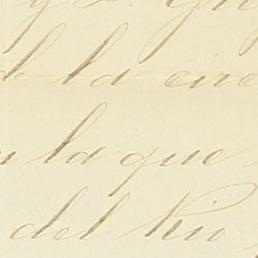 de la circ
la que
del Rio